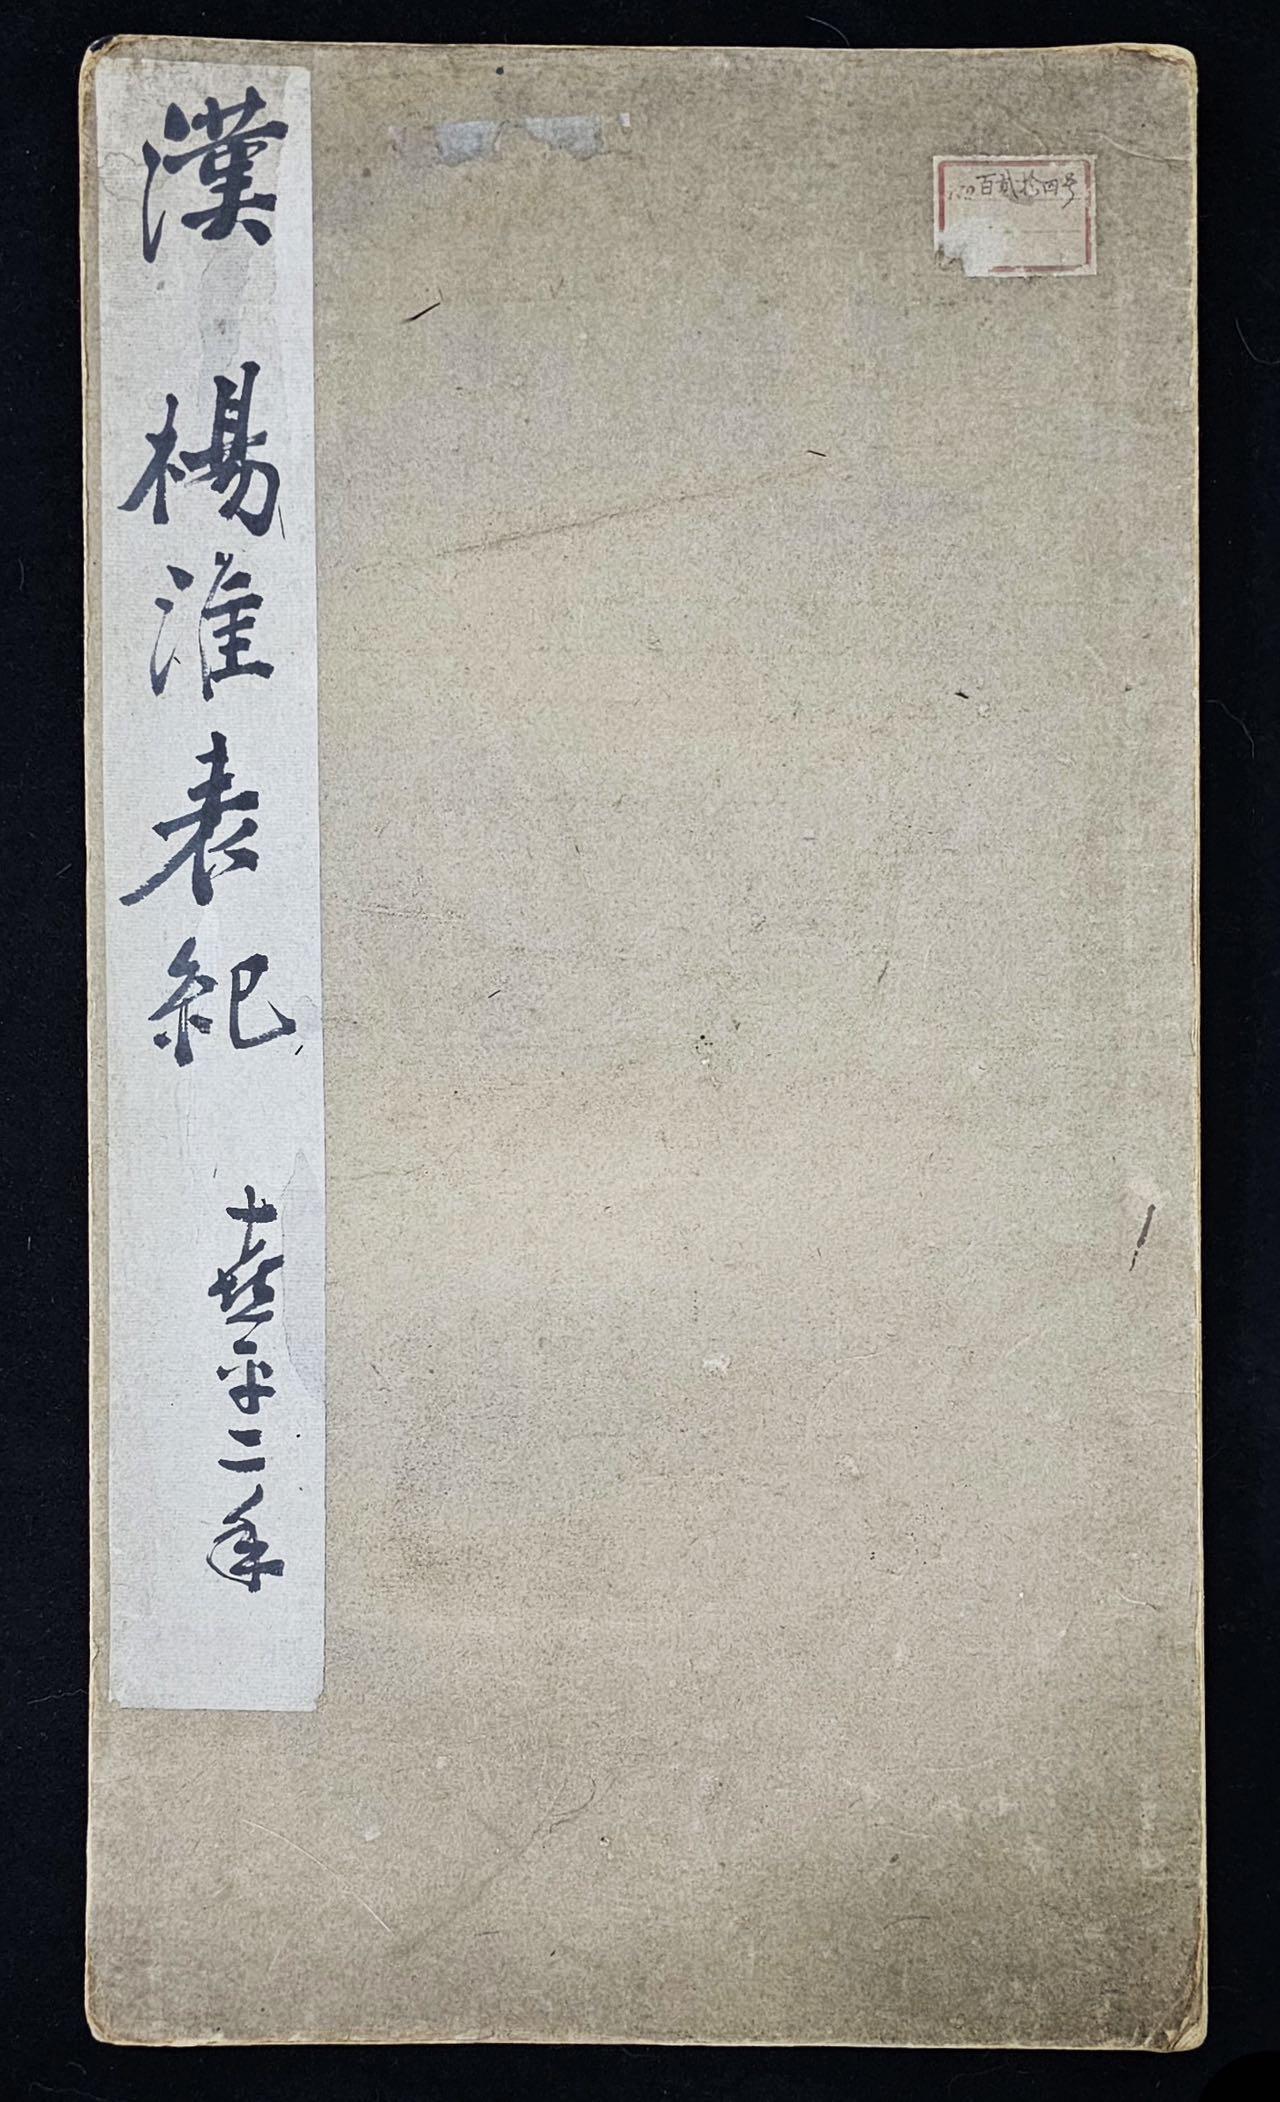 百貳拾四号
漢楊淮表紀
熹平二年